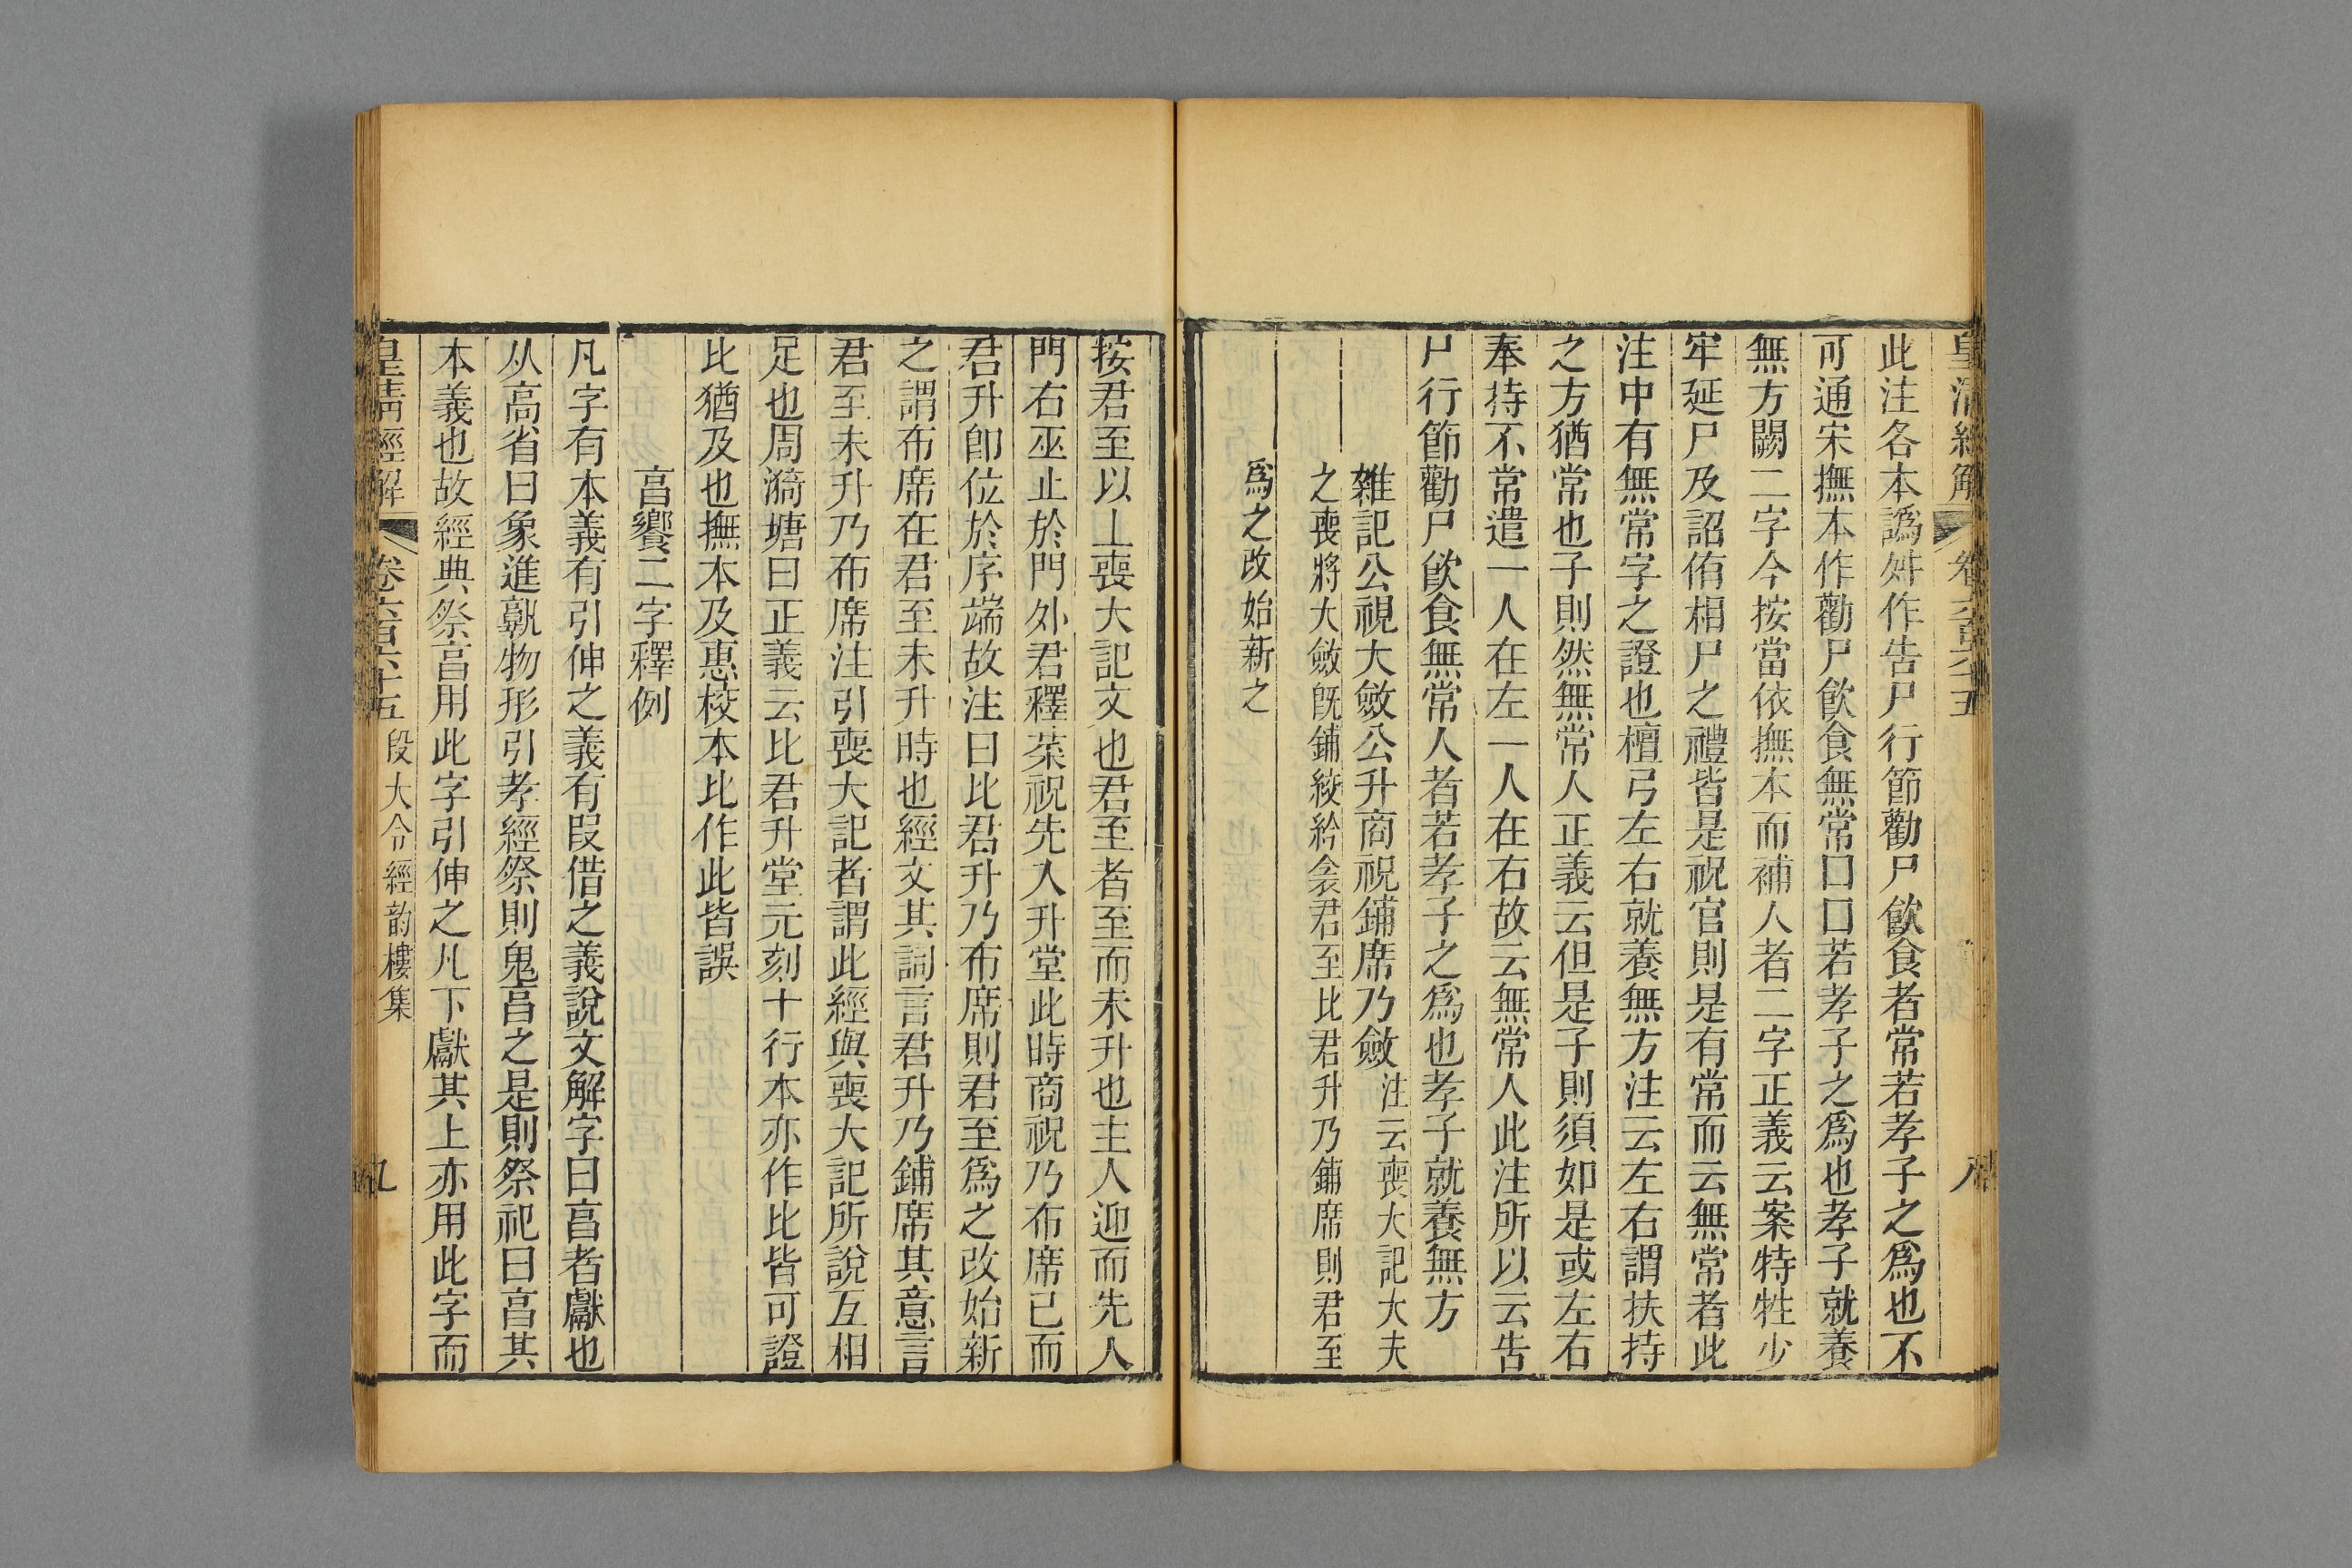 皇清經解 卷六百六十五 八
此注各本譌舛作告尸行節勸尸飲食者常若孝子之爲也不
可通宋撫本作勸尸飲食無常口口若孝子之爲也孝子就養
無方闕二字今按當依撫本而補人者二字正義云案特牲少
牢延尸及詔侑相尸之禮皆是祝官則是有常而云無常者此
注中有無常字之證也檀弓左右就養無方注云左右謂扶持
之方猶常也子則然無常人正義云但是子則須如是或左右
奉持不常遣一人在左一人在右故云無常人此注所以云告
尸行節勸尸飲食無常人者若孝子之爲也孝子就養無方
雜記公視大斂公升商祝鋪席乃斂注云喪大記大夫
之喪將大斂旣鋪絞紟衾君至比君升乃鋪席則君至
爲之改始新之
按君至以上喪大記文也君至者至而未升也主人迎而先入
門右巫止於門外君釋菜祝先入升堂此時商祝乃布席已而
君升卽位於序端故注曰比君升乃布席則君至爲之改始新
之謂布席在君至未升時也經文其詞言君升乃鋪席其意言
君至未升乃布席注引喪大記者謂此經與喪大記所說互相
足也周漪塘曰正義云比君升堂元刻十行本亦作比皆可證
比猶及也撫本及惠校本比作此皆誤
亯饗二字釋例
凡字有本義有引伸之義有叚借之義說文解字曰亯者獻也
从高省曰象進孰物形引孝經祭則鬼亯之是則祭祀曰亯其
本義也故經典祭亯用此字引伸之凡下獻其上亦用此字而
皇清經解 卷六百六十五 段大令經韵樓集 九